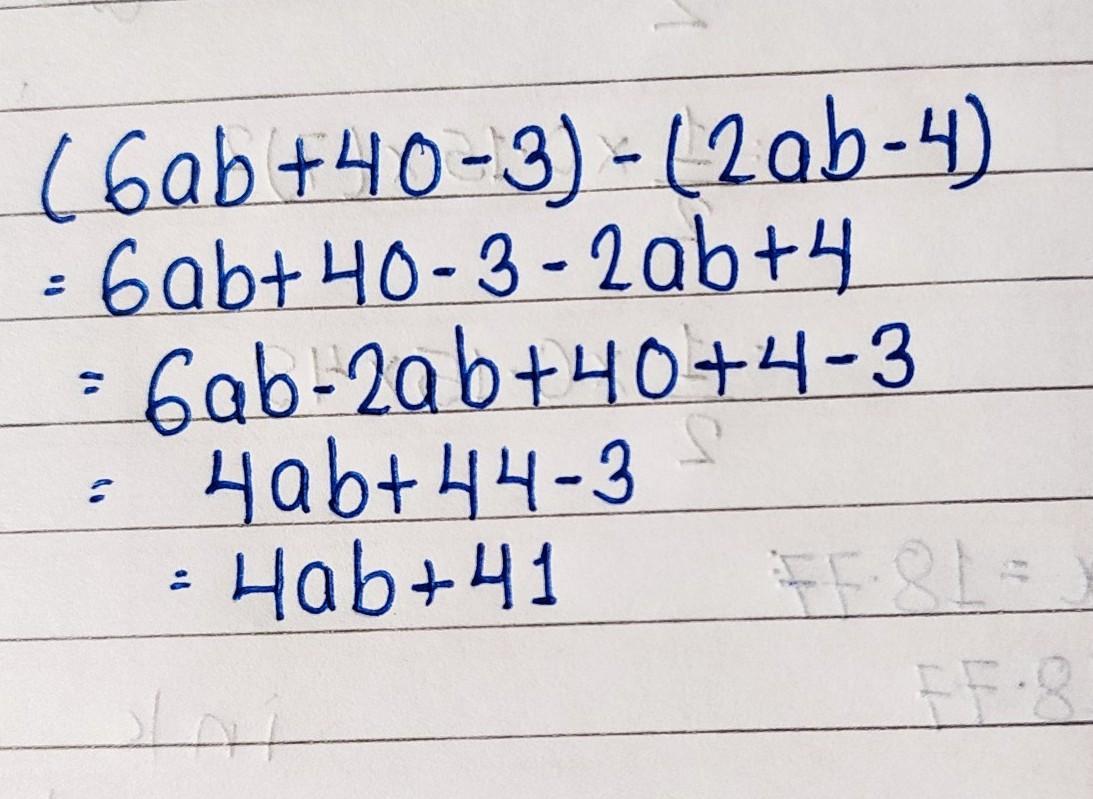 (6ab+40-3)-(2ab-4)
= 6ab+40-3-2ab+4
= 6ab-2ab+40+4-3
= 4ab+44-3
= 4ab+41